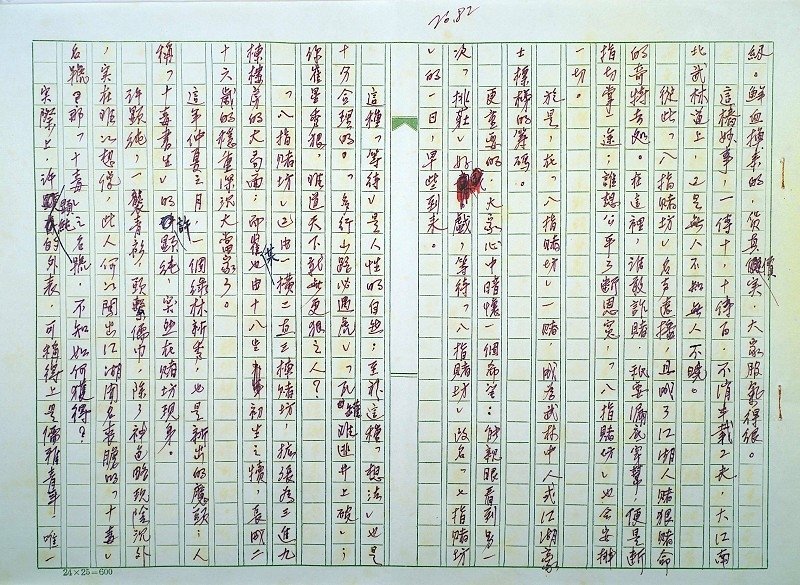 No.82
級。鮮血換來的,貨真價實,大家服氣得很。
這樁妙事,一傳十,十傳百,不消半載工夫,大江南
北武林道上,又是無人不知無人不曉。
從此,「八指賭坊」名声遠播,且成了江湖人賭狠賭命
的奇特去处。在這裡,誰敢詐賭、耍
指切掌一途;誰想公平了斷恩冤,「八指賭坊」也会安排
一切。
於是,在「八指賭坊」一賭,成為武林中人或江湖豪
士標榜的籌码。
更重要的,大家心中暗懷一個希望:能親眼看到另一
次「挑莊」好戲,等待「八指賭坊」改名「七指賭坊
」的一日,早些到來。
這種「等待」是人性的自然;至於這種「想法」也是
十分合理的。「多行山路必遇虎」、「瓦罐难逃井上破」;
你崔星秀狠,难道天下就無更狠之人?
「八指賭坊」已由一橫二直三棟賭坊,拡張為三進九
棟樓房的大局面;而崔也由十八生初生之犢,長成二
十六歲的穩重深沉大當家了。
這年仲夏之月,一個綠林新秀,也是新出的魔頭:人
稱「十毒書生」的許顯純,突然在賭坊現身。
許顯純,一襲青衫,頭繫儒巾,除了神色略現陰沉外
,实在难以想像,此人何以闖出江湖聞名喪膽的「十毒」
名號?那「十毒」之名號,不知如何獲得?
实際上,許顯純的外表,可稱得上是儒雅青年,唯一
24×25=600